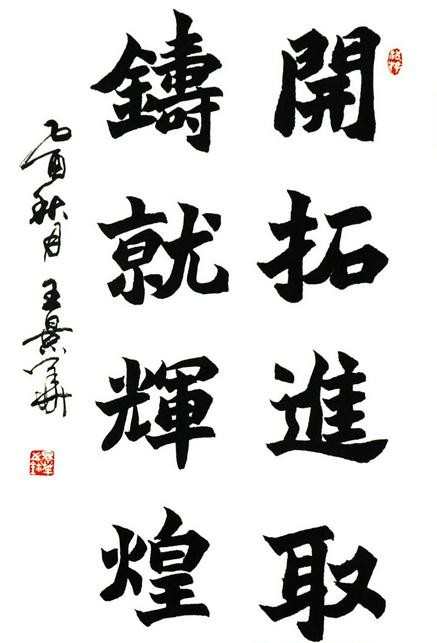 開拓進取
鑄就輝煌
乙酉秋月 王景